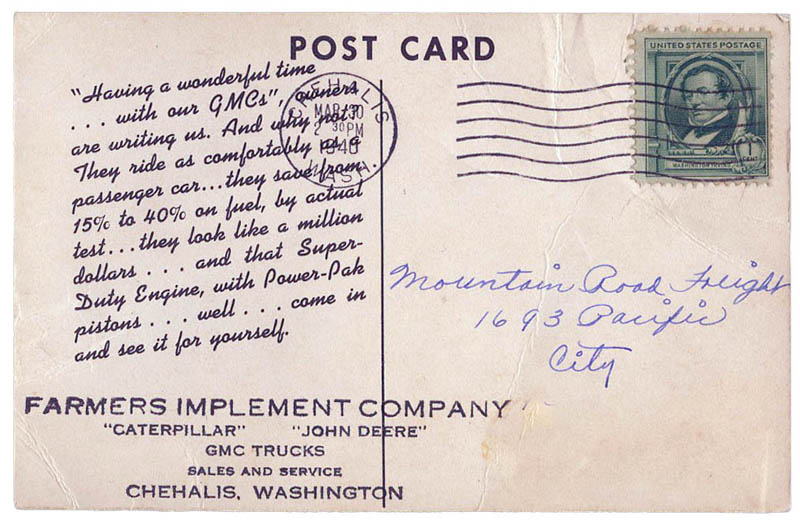 POST CARD
"Having a wonderful time
. . . with our GMCs", owners
are writing us. And why not?
They ride as comfortably as a
passenger car...they save from
15% to 40% on fuel, by actual
test...they look like a million
dollars . . . and that Super-
Duty Engine, with Power-Pak
pistons . . . well . . . come in
and see it for yourself.
CHEHALIS
MAR 30
2 30 PM
1940
WASH
UNITED STATES POSTAGE
WASHINGTON IRVING
1 CENT
Mountain Road Freight
1693 Pacific
City
FARMERS IMPLEMENT COMPANY
"CATERPILLAR" "JOHN DEERE"
GMC TRUCKS
SALES AND SERVICE
CHEHALIS, WASHINGTON